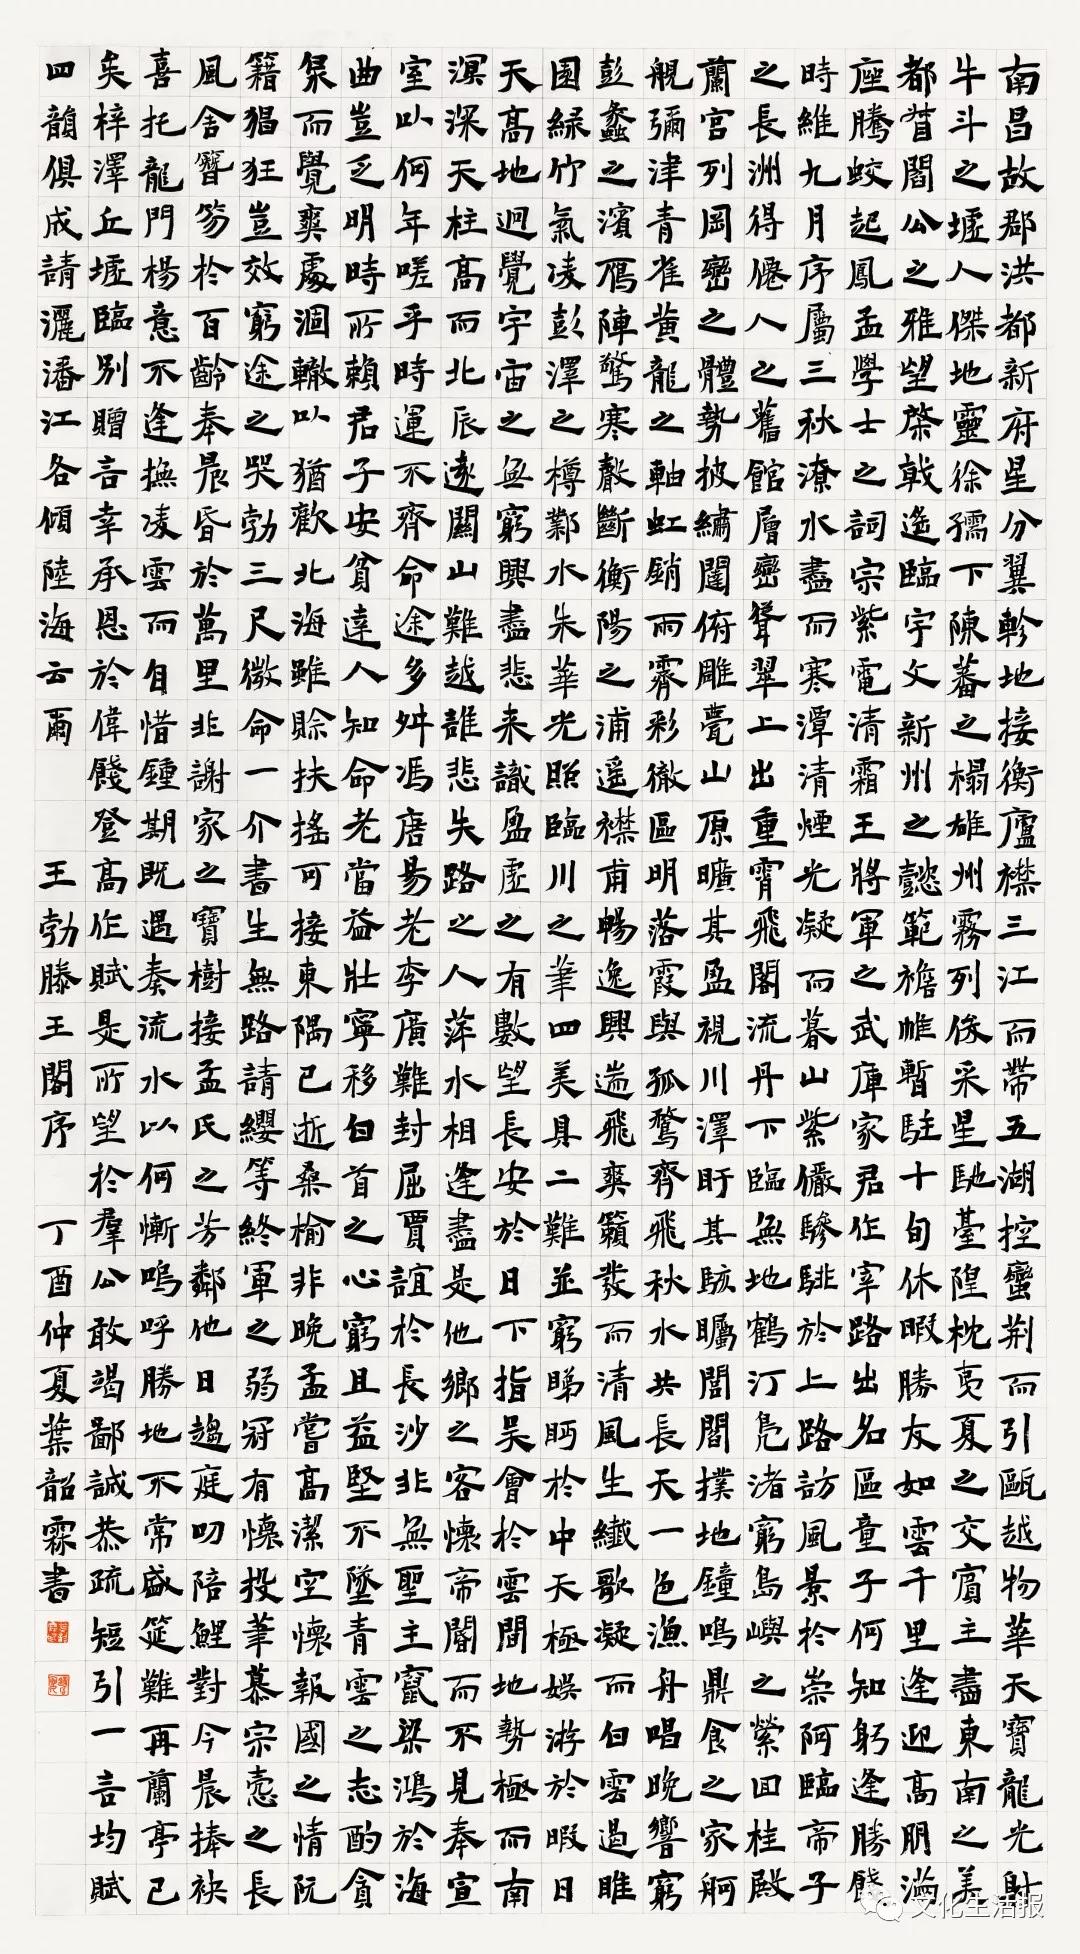 南昌故郡洪都新府星分翼軫地接衡廬襟三江而帶五湖控蠻荊而引甌越物華天寶龍光射
牛斗之墟人傑地靈徐孺下陳蕃之榻雄州霧列俊采星馳臺隍枕夷夏之交賓主盡東南之美
都督閻公之雅望棨戟遙臨宇文新州之懿範襜帷暫駐十旬休暇勝友如雲千里逢迎高朋滿
座騰蛟起鳳孟學士之詞宗紫電清霜王將軍之武庫家君作宰路出名區童子何知躬逢勝餞
時維九月序屬三秋潦水盡而寒潭清煙光凝而暮山紫儼驂騑於上路訪風景於崇阿臨帝子
之長洲得僊人之舊館層巒聳翠上出重霄飛閣流丹下臨無地鶴汀鳧渚窮島嶼之縈回桂殿
蘭宮列岡巒之體勢披繡闥俯雕甍山原曠其盈視川澤盱其駭矚閭閻撲地鐘鳴鼎食之家舸
艦彌津青雀黃龍之軸虹銷雨霽彩徹區明落霞與孤鶩齊飛秋水共長天一色漁舟唱晚響窮
彭蠡之濱雁陣驚寒聲斷衡陽之浦遥襟甫暢逸興遄飛爽籟發而清風生纖歌凝而白雲遏睢
園綠竹氣凌彭澤之樽鄴水朱華光照臨川之筆四美具二難並窮睇眄於中天極娛游於暇日
天高地迥覺宇宙之無窮興盡悲来識盈虛之有數望長安於日下指吳會於雲間地勢極而南
溟深天柱高而北辰遠關山難越誰悲失路之人萍水相逢盡是他鄉之客懷帝閽而不見奉宣
室以何年嗟乎時運不齊命途多舛馮唐易老李廣難封屈賈誼於長沙非無聖主竄梁鴻於海
曲豈乏明時所賴君子安貧達人知命老當益壯寧移白首之心窮且益堅不墜青雲之志酌貪
泉而覺爽處涸轍以猶歡北海雖賒扶搖可接東隅已逝桑榆非晚孟嘗高潔空懷報國之情阮
籍猖狂豈效窮途之哭勃三尺微命一介書生無路請纓等終軍之弱冠有懷投筆慕宗慤之長
風舍簪笏於百齡奉晨昏於萬里非謝家之寶樹接孟氏之芳鄰他日趨庭叨陪鯉對今晨捧袂
喜托龍門楊意不逢撫凌雲而自惜鍾期既遇奏流水以何慚嗚呼勝地不常盛筵難再蘭亭已
矣梓澤丘墟臨別贈言幸承恩於偉餞登高作賦是所望於羣公敢竭鄙誠恭疏短引一言均賦
四韻俱成請灑潘江各傾陸海云爾 王勃滕王閣序 丁酉仲夏葉韶霖書
文化生活报